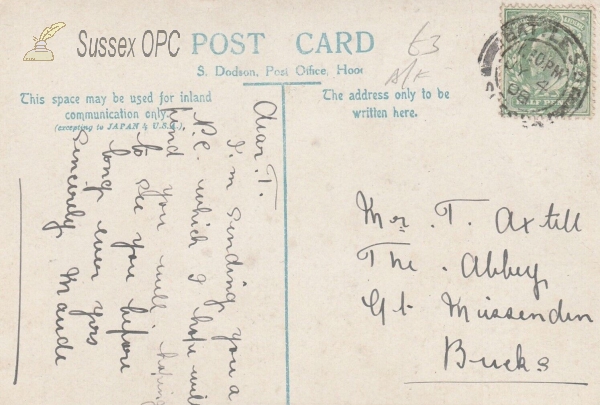 Sussex OPC
POST CARD
S. Dodson, Post Office, Hoor
This space may be used for inland
communication only.
(excepting to JAPAN & U.S.A.)
The address only to be
written here.
£3
A/F
BATTLE
PM
4
08
HALF PENNY
Dear T.
I'm sending you a
P.C. which I hope will
find you well. hoping
to see you before
long ever yors
Sincerely Maude
Mr. T. Axtell
The Abbey
Gt. Missenden
Bucks